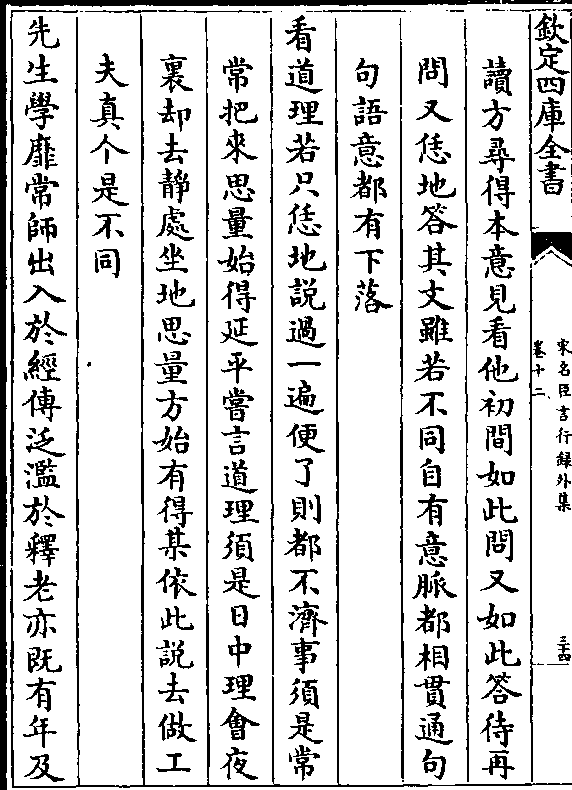 欽定四庫全書
宋名臣言行録外集
卷十二
三十四
讀方尋得本意見看他初間如此問又如此答待再
問又恁地答其文雖若不同自有意脈都相貫通句
句語意都有下落
看道理若只恁地説過一遍便了則都不濟事須是常
常把來思量始得延平嘗言道理須是日中理會夜
裏却去静處坐地思量方始有得某依此説去做工
夫真个是不同
先生學靡常師出入於經傳泛濫於釋老亦既有年及